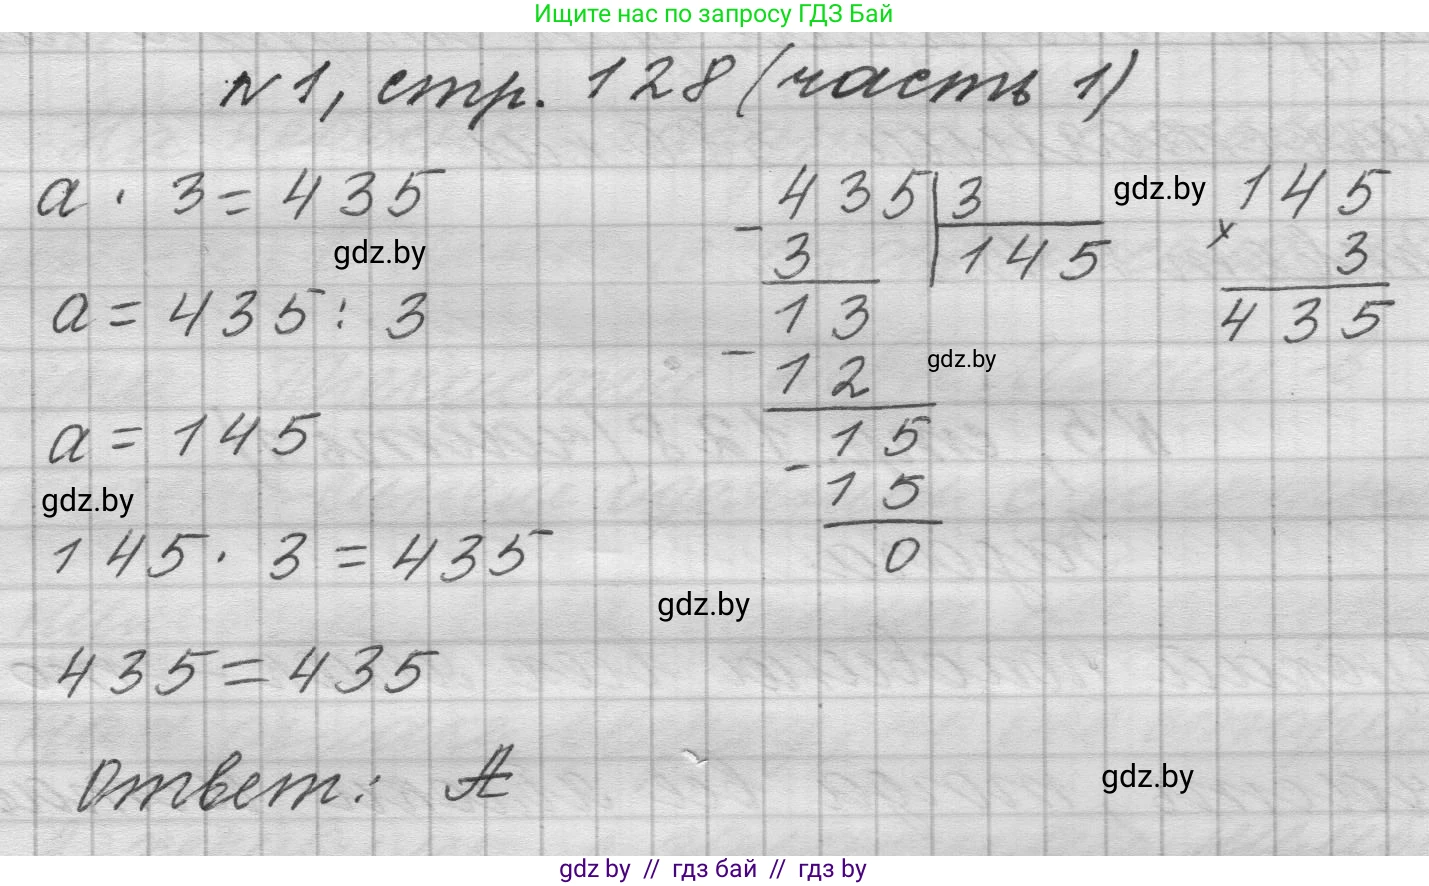 Ищите нас по запросу ГДЗ Бай
№1, стр. 128 (часть 1)
a · 3 = 435
gdz.by
a = 435 : 3
a = 145
gdz.by
145 · 3 = 435
435 = 435
Ответ: А
- 435 | 3
3 | 145
13
- 12
15
- 15
0
gdz.by
gdz.by
gdz.by
145
× 3
435
gdz.by
gdz by // гдз бай // гдз by